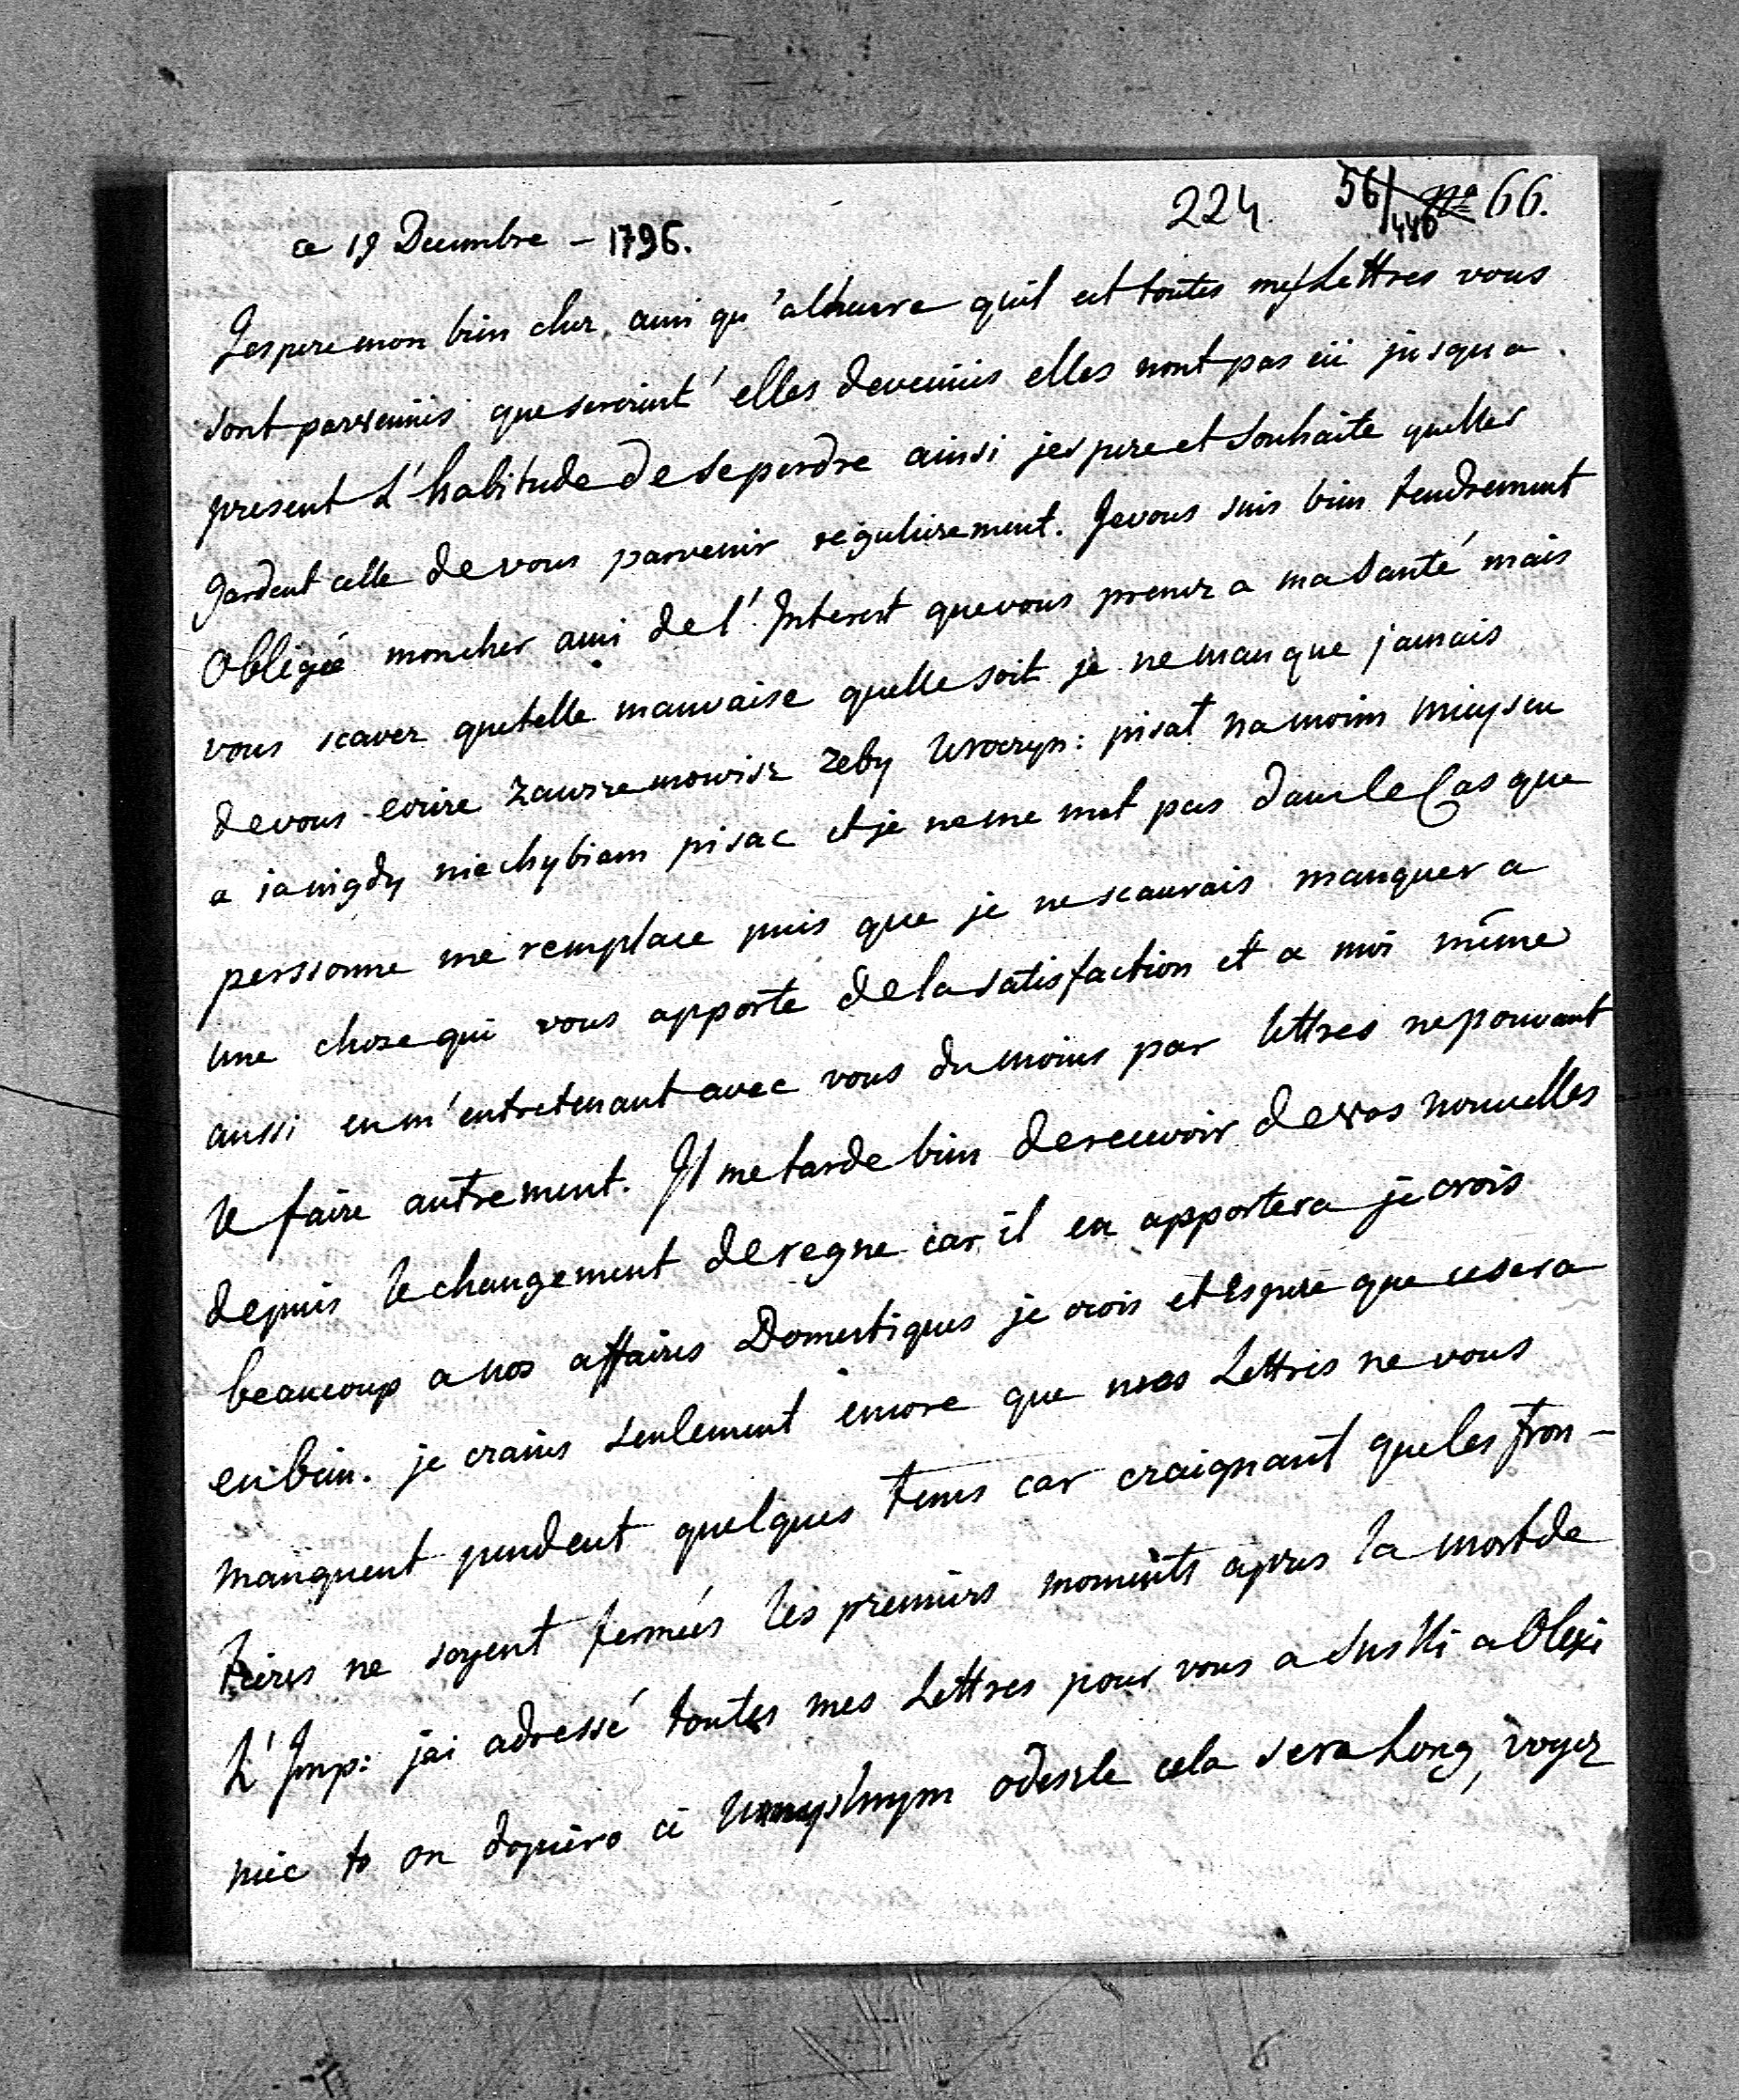 224. 56/446 No 66.
ce 19 Decembre - 1796.
Jespere mon bien cher ami qu'alheure quil est toutes mes Lettres vous
sont parvenuës que seroient' elles devenuës elles nont pas eü jusqu a
present L'habitude de se perdre ainsi jespere et Souhaite quelles
gardent celle de vous parvenir regulierement. Je vous suis bien tendrement
obligée moncher ami de l'Interest que vous prenez a ma Santé mais
vous scavez quetelle mauvaise quelle soit je ne manque jamais
de vous ecrire zawszemowisz zeby Uroczys: pisat na moim mieyscu
a ia nigdy niechybiam pisac et je ne me met pas dans le Cas que
perssonne me remplace puis que je ne scaurais manquer a
une chose qui vous apporte de la satisfaction et a moi même
aussi en m'entretenant avec vous du moins par lettres ne pouvant
le faire autrement. Il me tarde bien de recevoir de vos nouvelles
depuis le changement de regne car il en apportera je crois
beaucoup a nos affaires Domestiques je crois et Espere que ce sera
en bien. je crains seulement encore que mes Lettres ne vous
manquent pendent quelques tems car craignant que les fron-
tieres ne soyent fermées les premiers moments apres la mort de
L'Imp: jai adressé toutes mes Lettres pour vous a Suski a Olexi
niec to on dopiero ci odeszle cela sera Long, voyez